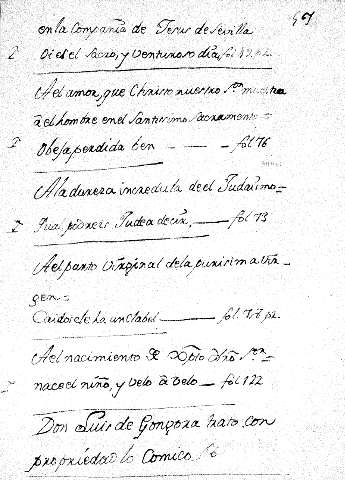 57
en la Compañia de Jesus de Sevilla
Oi es el Sacro, y Venturoso dia, fol 49. p2.
Ael amor, que Christo nuestro Sr. muestra
a el hombre en el Santissimo Sacramento =
Obeja perdida ben — — — fol 76
A la dureza incredula de el Judaismo =
Qual podreis Judea decir, — fol 73
Ael parto Virginal de la purissima Vir-
gen =
Caidosele ha un Clabel — fol 77. p2.
Ael nacimiento de Xpto Nro Sr. =
nace el niño, y velo a velo — fol 122
Don Luis de Gongora trato con
propriedad lo Comico